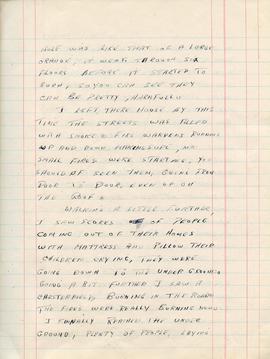 HOLE WAS LIKE THAT OF A LARGE
ORANGE, IT WENT THROUGH SIX
FLOORS BEFORE IT STARTED TO
BURN, SO YOU CAN SEE THEY
CAN BE PRETTY HARMFULL.
I LEFT THERE HOUSE BY THIS
TIME THE STREETS WAS FILLED
WITH SMOKE & FIRE WARDENS RUNNING
UP AND DOWN MAKING SURE, NO
SMALL FIRES WERE STARTING, YOU
SHOULD OF SEEN THEM, GOING FROM
DOOR TO DOOR, EVEN UP ON
THE ROOFS
WALKING A LITTLE FURTHER,
I SAW SCORES OF PEOPLE
COMING OUT OF THEIR HOMES
WITH MATTRESS AND PILLOW THEIR
CHILDREN CRYING, THEY WERE
GOING DOWN TO THE UNDER GROUND
GOING A BIT FURTHER I SAW A
CHESTERFIELD, BURNING IN THE ROAD
THE FIRES WERE REALLY BURNING NOW
I FINALLY REACHED THE UNDER
GROUND, PLENTY OF PEOPLE, LAYING